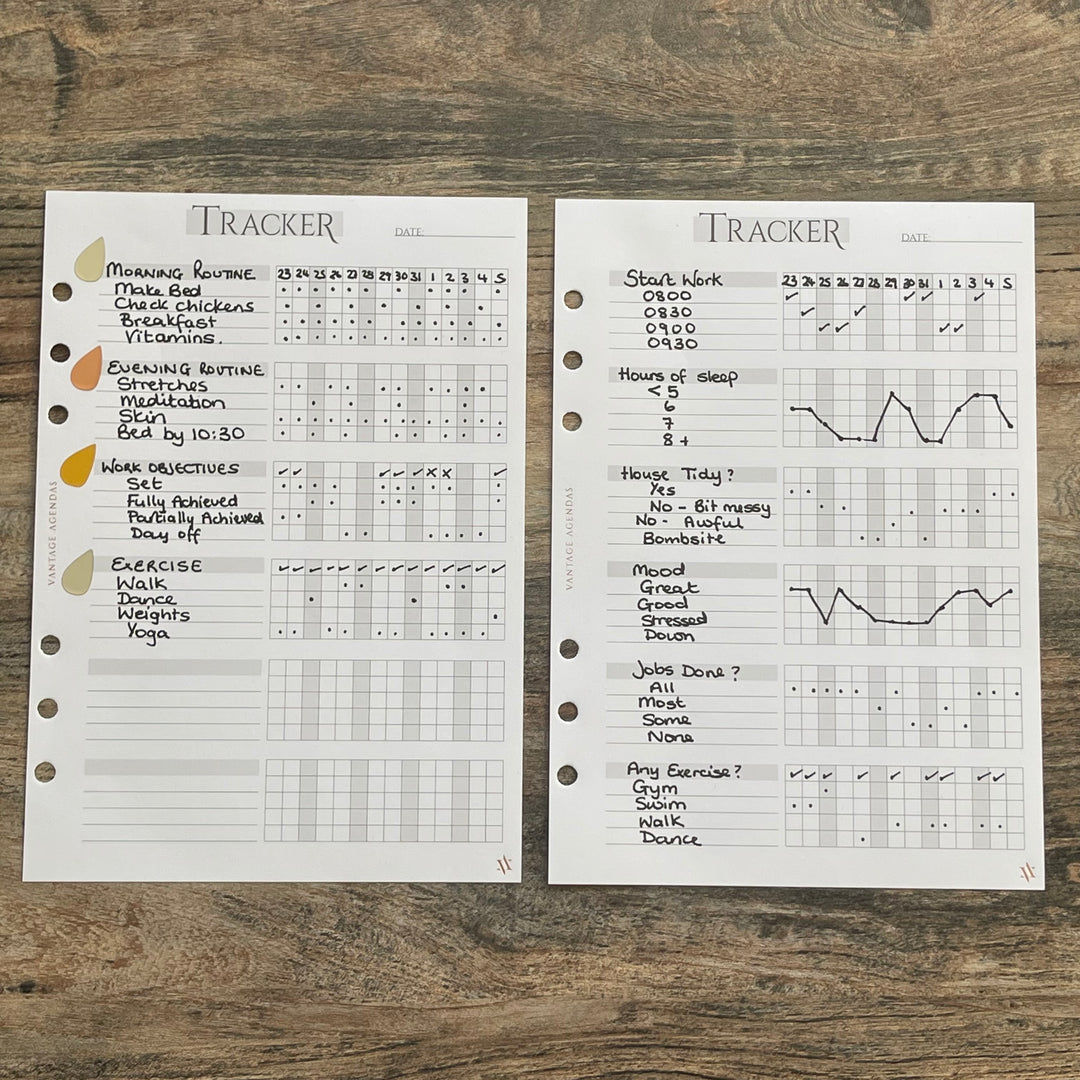 TRACKER
DATE:
MORNING ROUTINE 23 24 25 26 27 28 29 30 31 1 2 3 4 5
Make Bed
Check chickens
Breakfast
Vitamins.
EVENING ROUTINE
Stretches
Meditation
Skin
Bed by 10:30
WORK OBJECTIVES
Set
Fully Achieved
Partially Achieved
Day off
EXERCISE
Walk
Dance
Weights
Yoga
VANTAGE AGENDAS
TRACKER
DATE:
Start Work 23 24 25 26 27 28 29 30 31 1 2 3 4 5
0800
0830
0900
0930
Hours of sleep
< 5
6
7
8 +
House Tidy?
Yes
No - Bit messy
No - Awful
Bombsite
Mood
Great
Good
Stressed
Down
Jobs Done?
All
Most
Some
None
Any Exercise?
Gym
Swim
Walk
Dance
VANTAGE AGENDAS